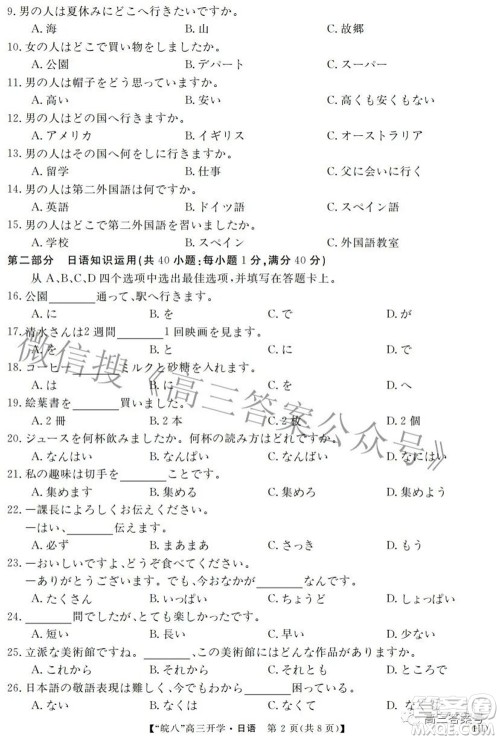 9.男の人は夏休みにどこへ行きたいですか。
A.海 B.山 C.故郷
10.女の人はどこで買い物をしましたか。
A.公園 B.デパート C.スーパー
11.男の人は帽子をどう思っていますか。
A.高い B.安い C.高くも安くもない
12.男の人はどの国へ行きますか。
A.アメリカ B.イギリス C.オーストラリア
13.男の人はその国へ何をしに行きますか。
A.留学 B.仕事 C.父に会いに行く
14.男の人は第二外国語は何ですか。
A.英語 B.ドイツ語 C.スペイン語
15.男の人はどこで第二外国語を習いましたか。
A.学校 B.スペイン C.外国語センター
第二部分 日语知识运用(共40小题:每小题1分,满分40分)
从A、B、C、D四个选项中选出最佳选项,并填写在答题卡上。
16.公園______通って、駅へ行きます。
A.に B.を C.で D.が
17.清水さんは2週間______1回映画を見ます。
A.を B.に C.で D.と
18.コーヒー______ミルクと砂糖を入れます。
A.は B.に C.へ D.も
19.絵葉書を______買いました。
A.2冊 B.2本 C.2枚 D.2個
20.ジュースを何杯飲みましたか。何杯の読み方はどれですか。
A.なんばい B.なんぱい C.なんはい D.なにはい
21.私の趣味は切手を______ことです。
A.集めます B.集める C.集めろ D.集めよう
22.—課長によろしくお伝えください。
—はい、______伝えます。
A.必ず B.まあまあ C.さっき D.もう
23.—おいしいですよ、どうぞ食べてください。
—ありがとうございます。でも、今おなかが______です。
A.たくさん B.いっぱい C.ちょうど D.もっと
24.______間でしたが、とても楽しかったです。
A.短い B.長い C.早い D.少ない
25.立派な美術館ですね。______、この美術館にはどんな作品がありますか。
A.これから B.それから C.ところで D.ところが
26.日本語の敬語表現は難しいので、______
【“皖八”高三开学·日语 第2页(共8页)】
微信搜《高三答案公众号》
高三答案号